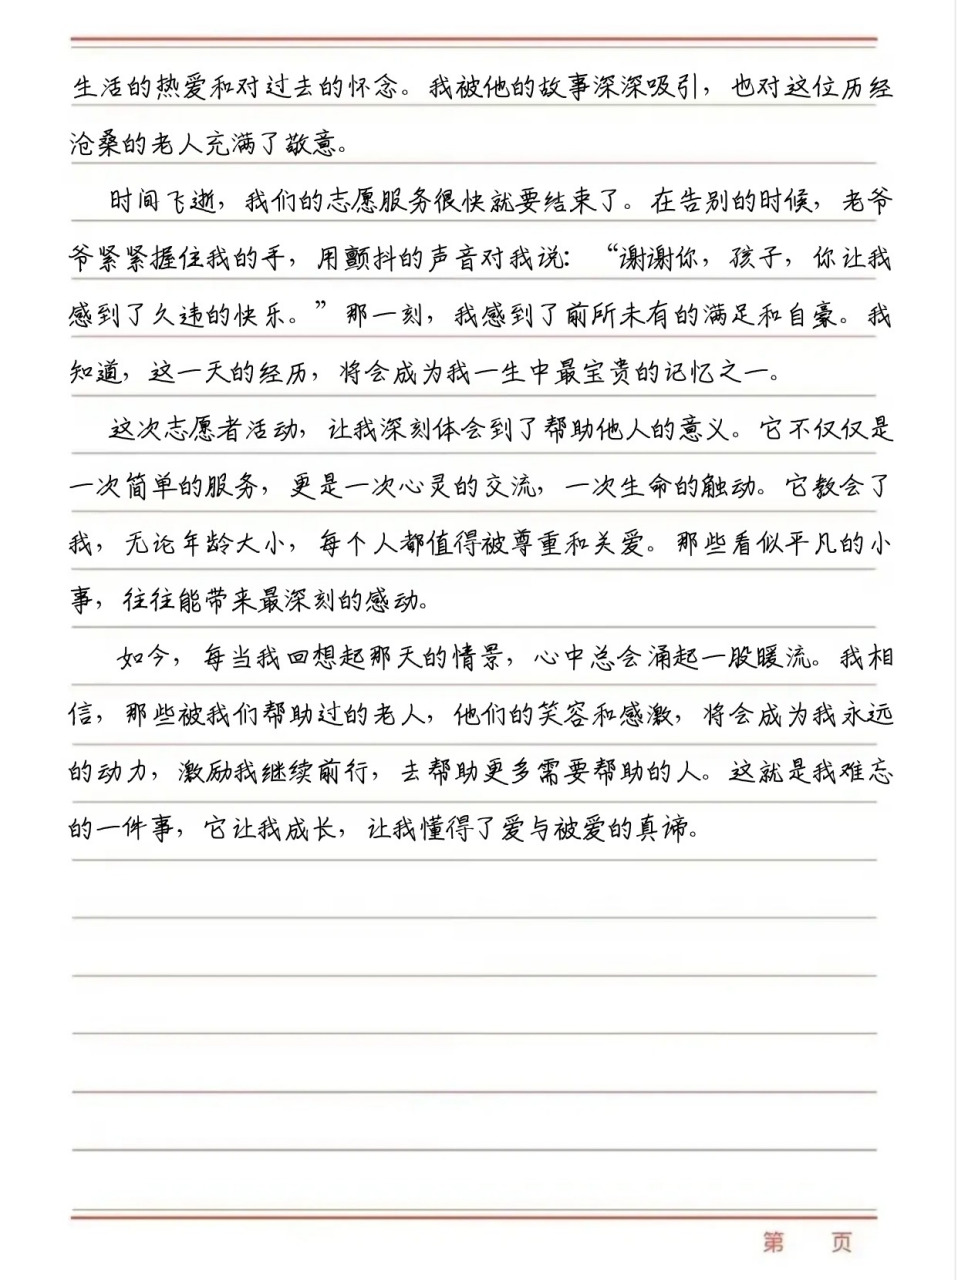 生活的热爱和对过去的怀念。我被他的故事深深吸引，也对这位历经
沧桑的老人充满了敬意。
时间飞逝，我们的志愿服务很快就要结束了。在告别的时候，老爷
爷紧紧握住我的手，用颤抖的声音对我说：“谢谢你，孩子，你让我
感到了久违的快乐。”那一刻，我感到了前所未有的满足和自豪。我
知道，这一天的经历，将会成为我一生中最宝贵的记忆之一。
这次志愿者活动，让我深刻体会到了帮助他人的意义。它不仅仅是
一次简单的服务，更是一次心灵的交流，一次生命的触动。它教会了
我，无论年龄大小，每个人都值得被尊重和关爱。那些看似平凡的小
事，往往能带来最深刻的感动。
如今，每当我回想起那天的情景，心中总会涌起一股暖流。我相
信，那些被我们帮助过的老人，他们的笑容和感激，将会成为我永远
的动力，激励我继续前行，去帮助更多需要帮助的人。这就是我难忘
的一件事，它让我成长，让我懂得了爱与被爱的真谛。
第 页